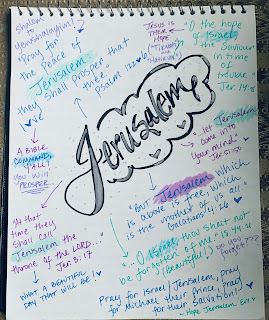 shalom
to
Yerushalayim!
"Pray for
the Peace of
Jerusalem:
they shall Prosper that
love
Psalm 122:6
JESUS is
THEIR
HOPE
"O the hope
of Israel,
the Saviour
in time
of
trouble"
Jer. 14:8
Jerusalem
A BIBLE
COMMAND, ALL!
YOU WILL
PROSPER
"...let Jerusalem
come into
your mind"
Jer. 51:50
"At that
time they
shall call
Jerusalem the
throne of the LORD..."
Jer. 3:17
WHAT A BEAUTIFUL
DAY THAT WILL BE!
"But Jerusalem which
is above is free, which
is the mother of us all"
Galatians 4:26
"...O Israel, thou shalt not
be forgotten of me." Is. 44:21
(Beautiful!)
Do you
forget???
Pray for Israel/Jerusalem, pray
for Michael their Prince, pray
for their Salvation!
Hope Jerusalem